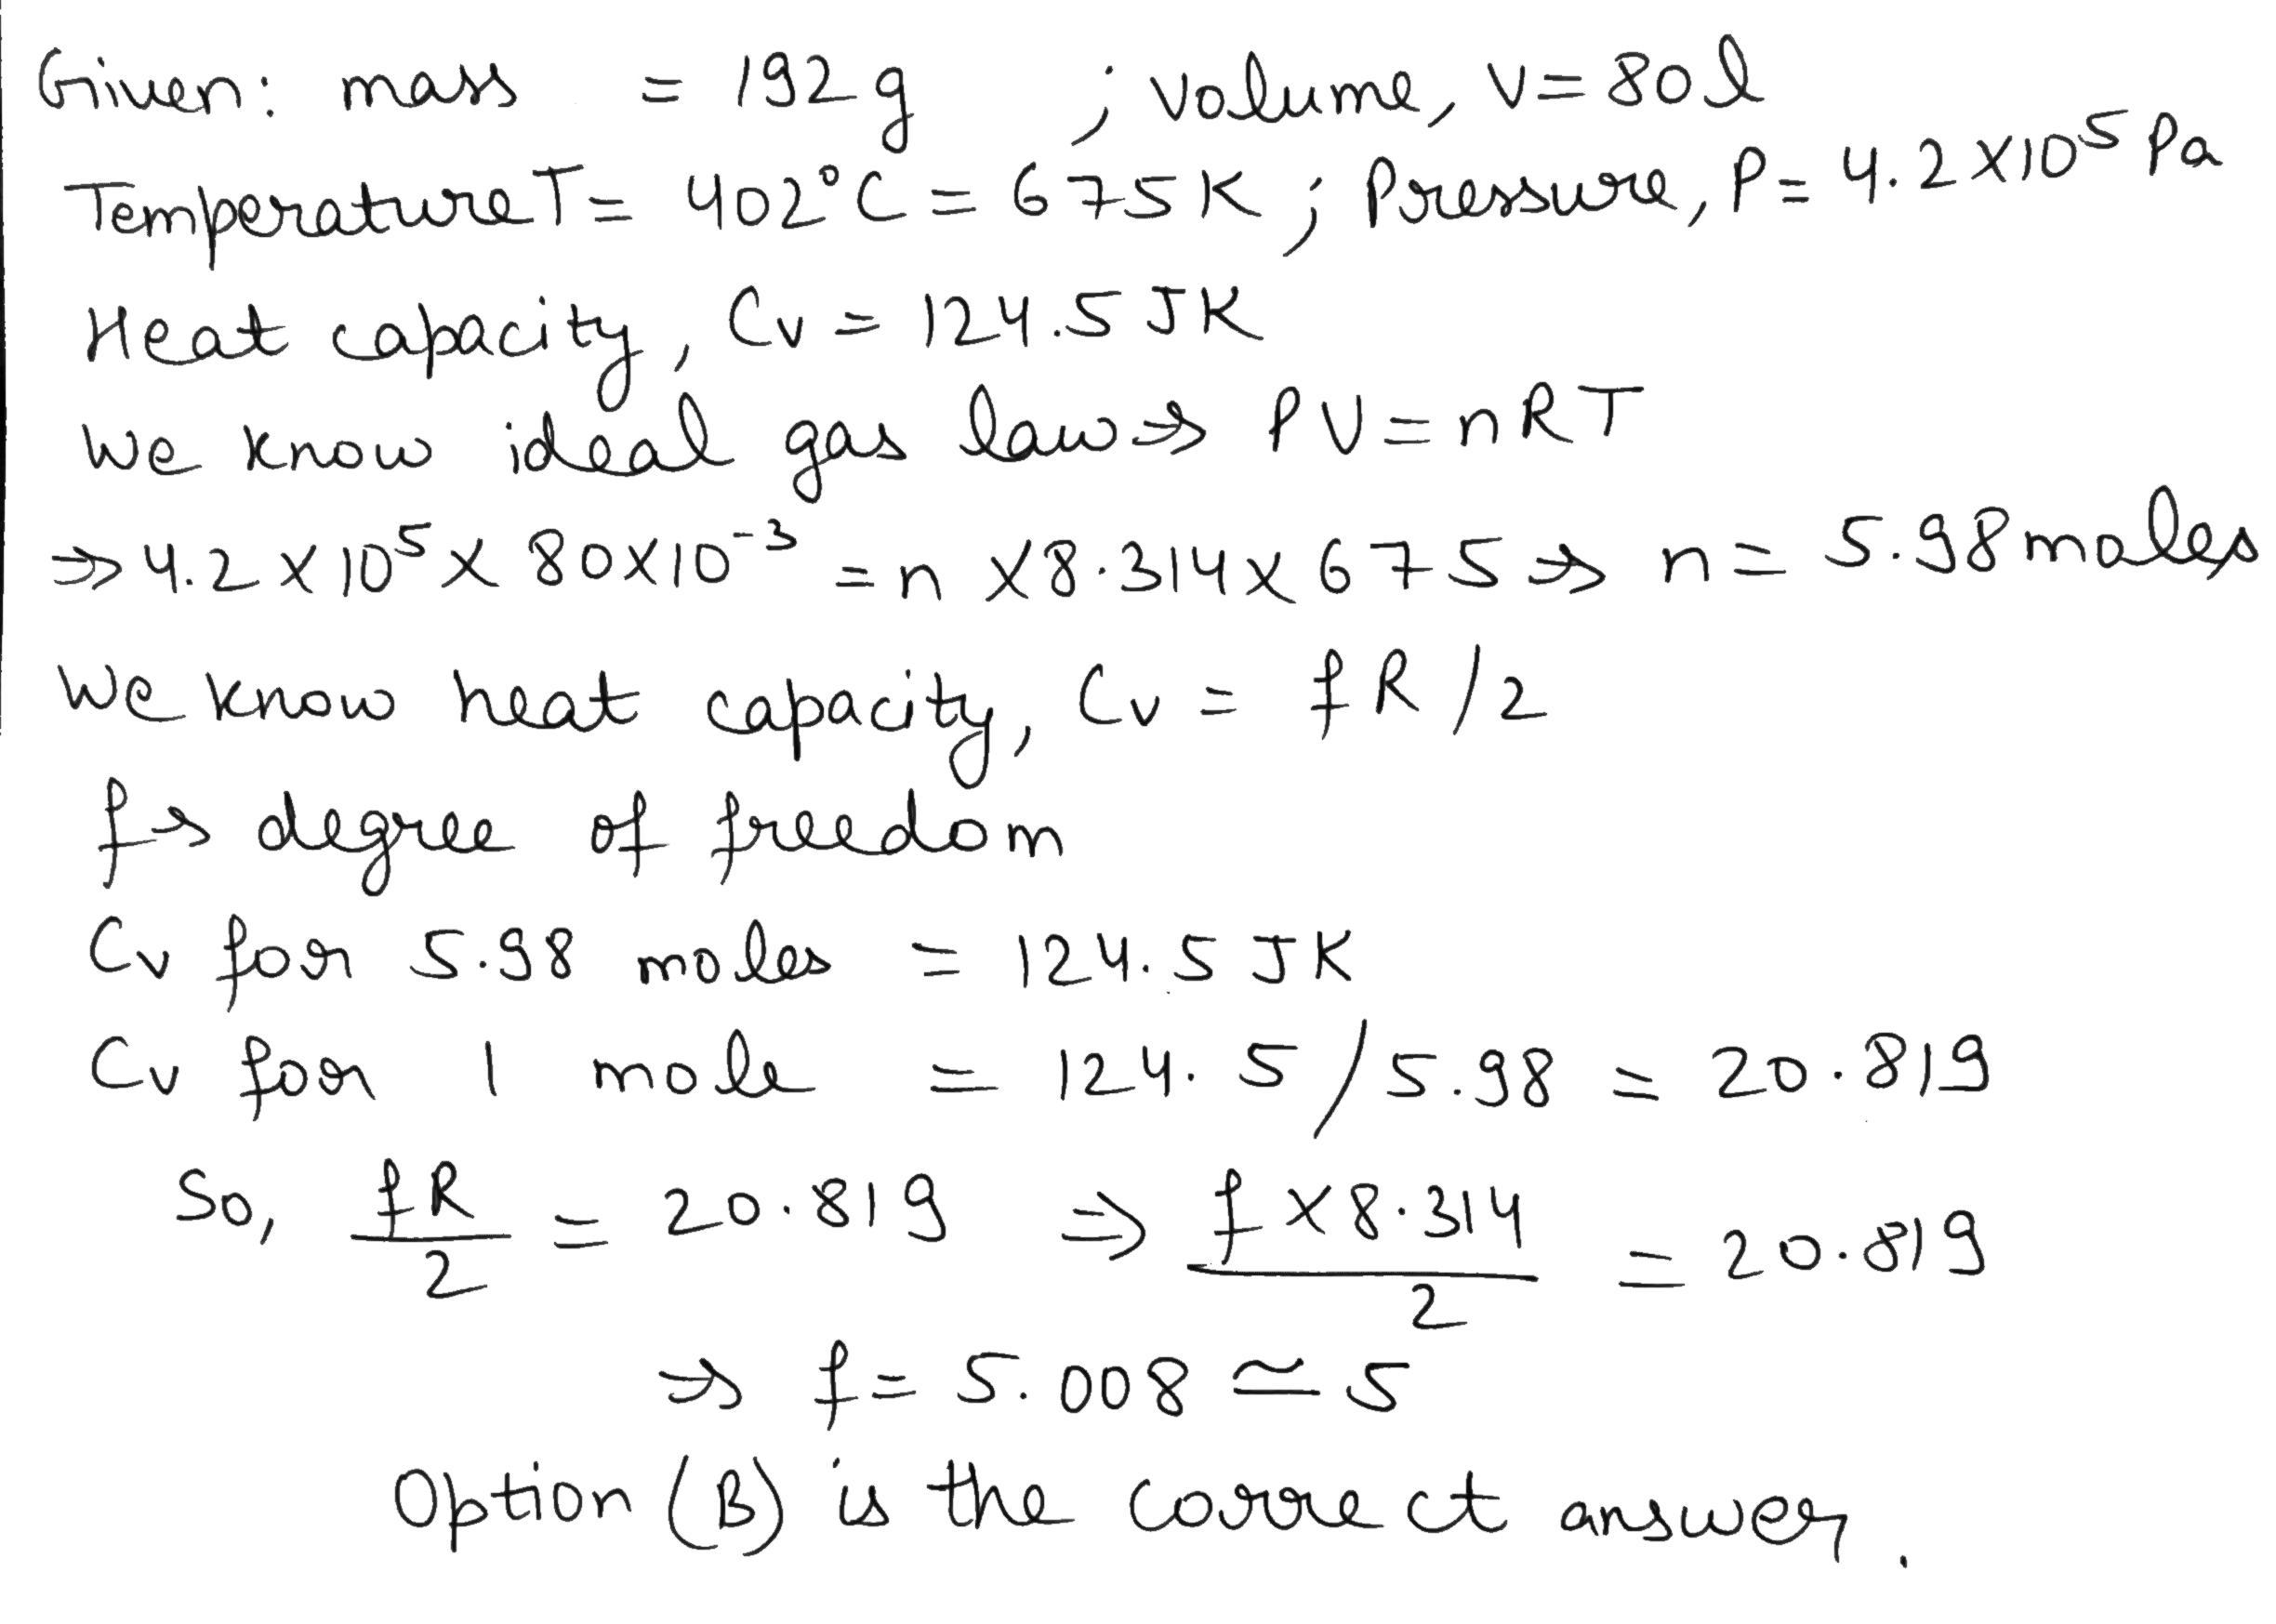 Given: mass = 192 g ; volume, V = 80 l
Temperature T = 402°C = 675 K ; Pressure, P = 4.2 × 10⁵ Pa
Heat capacity, Cv = 124.5 JK
We know ideal gas law ⇒ PV = nRT
⇒ 4.2 × 10⁵ × 80 × 10⁻³ = n × 8.314 × 675 ⇒ n = 5.98 moles
We know heat capacity, Cv = fR/2
f → degree of freedom
Cv for 5.98 moles = 124.5 JK
Cv for 1 mole = 124.5 / 5.98 = 20.819
So, fR/2 = 20.819 ⇒ f × 8.314 / 2 = 20.819
⇒ f = 5.008 ≃ 5
Option (B) is the correct answer.